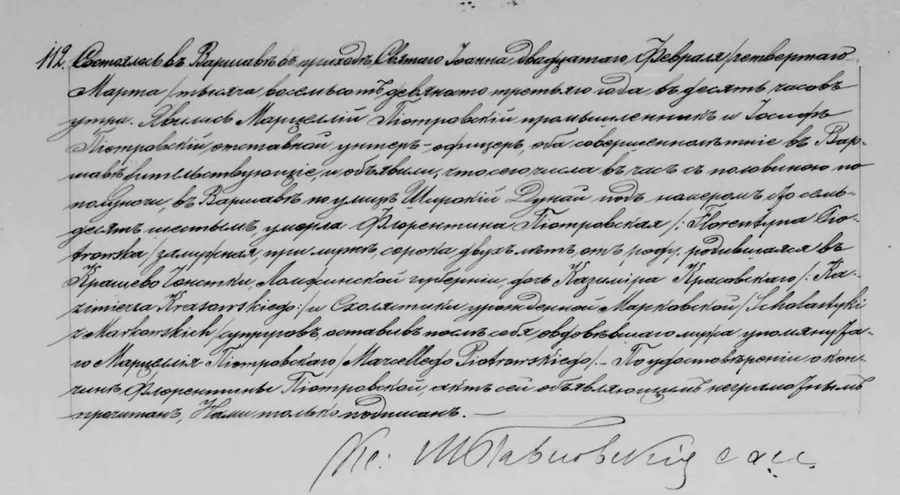 112. Состоялось въ Варшавѣ въ приходѣ Святаго Іоанна, двадцатаго Февраля /четвертаго
Марта/ тысяча восемьсотъ девяносто третьяго года въ десять часовъ
утра. Явились Марцеллій Піотровскій промышленникъ и Іосифъ
Піотровскій отставной унтеръ-офицеръ, оба совершеннолѣтніе въ Вар-
шавѣ жительствующіе, и объявили, что сего числа въ часъ съ половиною по
полуночи, въ Варшавѣ по улицѣ Широкій Дунай подъ номеромъ семь-
десятъ шестымъ умерла Флорентина Піотровская /: Florentyna Pio-
trowska / замужняя, при мужѣ, сорока двухъ лѣтъ отъ роду, родившаяся въ
Крашево Чонстки, Ломжинской губерніи, дочь Казиміра Красовскаго /: Ka-
zimierza Krasowskiego :/ и Схолястики урожденной Марковской / Scholastyki
z Markowskich / супруговъ, оставивъ послѣ себя овдовѣвшаго мужа упомянута-
го Марцеллія Піотровскаго / Marcellego Piotrowskiego /. — По удостовѣреніи о кон-
чинѣ Флорентины Піотровской, актъ сей объявляющимъ неграмотнымъ
прочитанъ, Нами только подписанъ. —
Кс: